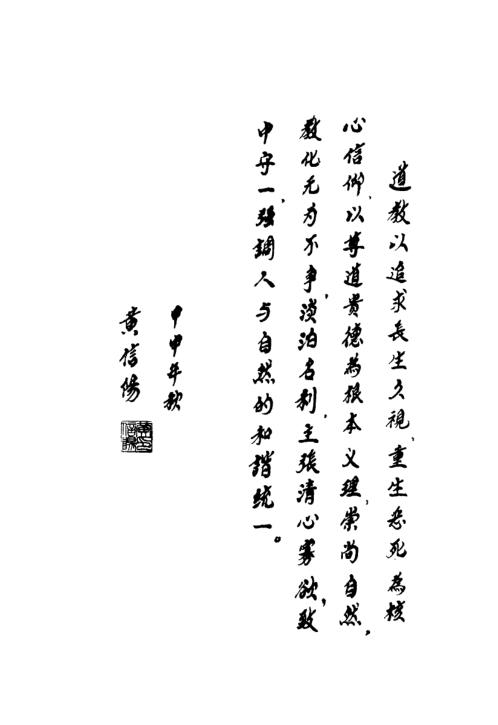 道教以追求長生久視、重生惡死為核
心信仰，以尊道貴德為根本义理，崇尚自然，
教化无为不事，淡泊名利，主張清心寡欲，致
中守一，强調人与自然的和諧統一。
甲申年秋
黄信陽